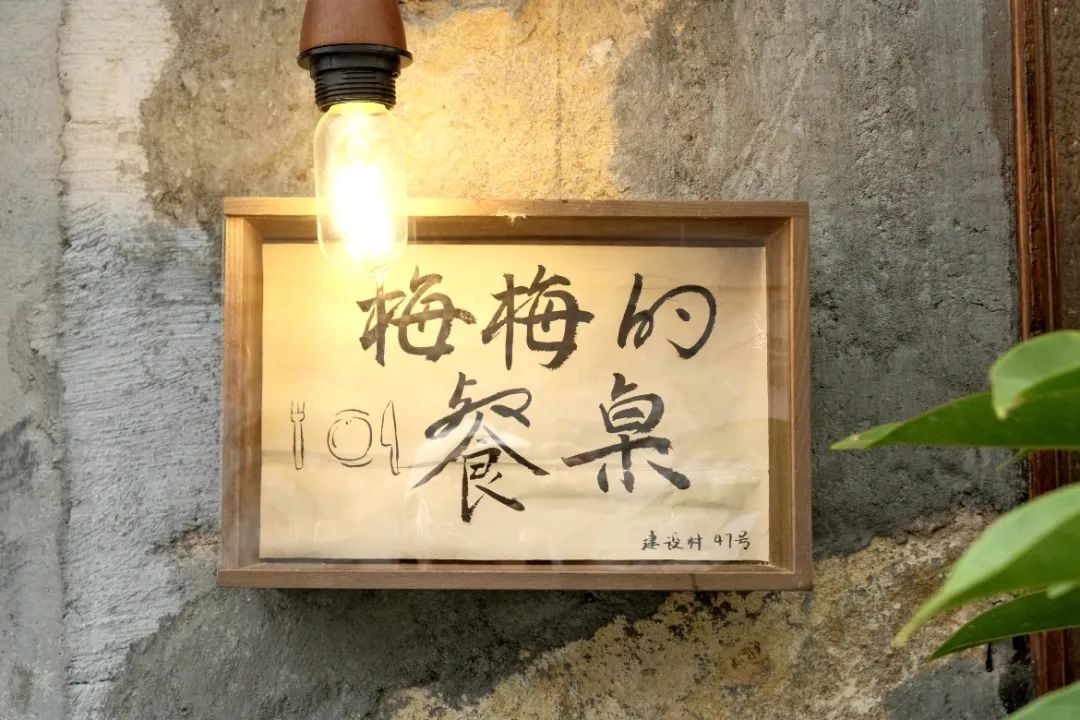 梅梅的
餐桌
建设村 47号